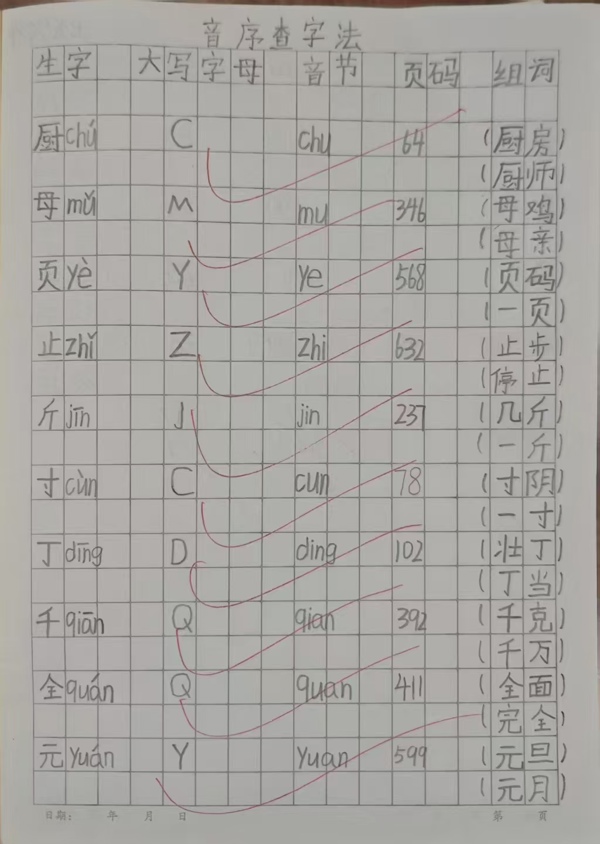 音序查字法
生字 大写字母 音节 页码 组词
厨chú C chu 64 (厨房)
(厨师)
母mǔ M mu 346 (母鸡)
(母亲)
页yè Y ye 568 (页码)
(一页)
止zhǐ Z zhi 632 (止步)
(停止)
斤jīn J jin 237 (几斤)
(一斤)
寸cùn C cun 78 (寸阴)
(一寸)
丁dīng D ding 102 (壮丁)
(丁当)
千qiān Q qian 392 (千克)
(千万)
全quán Q quan 411 (全面)
(完全)
元yuán Y yuan 599 (元旦)
(元月)
日期: 年 月 日 第 页